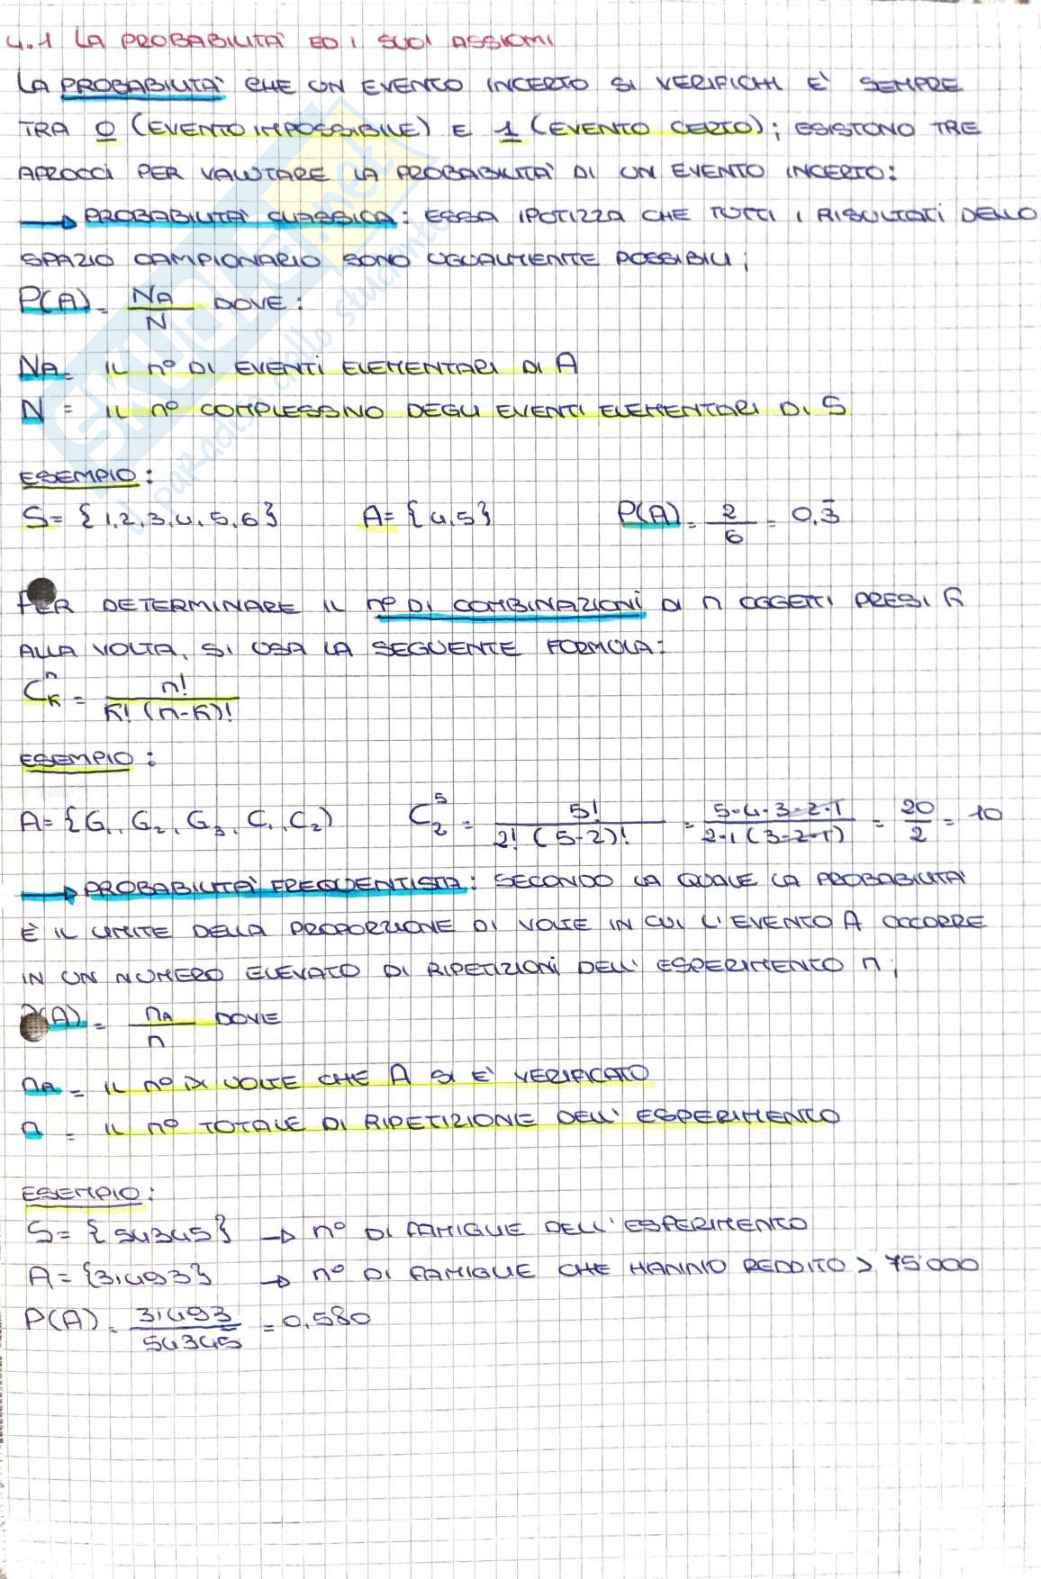 4.1 LA PROBABILITA' ED I SUOI ASSIOMI
LA PROBABILITA' CHE UN EVENTO INCERTO SI VERIFICHI E' SEMPRE
TRA 0 (EVENTO IMPOSSIBILE) E 1 (EVENTO CERTO); ESISTONO TRE
APROCCI PER VALUTARE LA PROBABILITA' DI UN EVENTO INCERTO:
→ PROBABILITA' CLASSICA: ESSA IPOTIZZA CHE TUTTI I RISULTATI DELLO
SPAZIO CAMPIONARIO SONO UGUALMENTE POSSIBILI;
P(A) = NA/N DOVE:
NA = IL n° DI EVENTI ELEMENTARI DI A
N = IL n° COMPLESSIVO DEGLI EVENTI ELEMENTARI DI S
ESEMPIO:
S= {1,2,3,4,5,6} A= {4,5} P(A) = 2/6 = 0,3̄
PER DETERMINARE IL n° DI COMBINAZIONI DI n OGGETTI PRESI K
ALLA VOLTA, SI USA LA SEGUENTE FORMULA:
C^n_K = n!/K!(n-K)!
ESEMPIO:
A= {G1, G2, G3, C1, C2) C^5_2 = 5!/2!(5-2)! = 5·4·3·2·1/2·1(3·2·1) = 20/2 = 10
→ PROBABILITA' FREQUENTISTA: SECONDO LA QUALE LA PROBABILITA'
È IL LIMITE DELLA PROPORZIONE DI VOLTE IN CUI L'EVENTO A OCCORRE
IN UN NUMERO ELEVATO DI RIPETIZIONI DELL'ESPERIMENTO n;
P(A) = nA/n DOVE
nA = IL n° DI VOLTE CHE A SI E' VERIFICATO
n = IL n° TOTALE DI RIPETIZIONE DELL'ESPERIMENTO
ESEMPIO:
S= {54345} → n° DI FAMIGLIE DELL'ESPERIMENTO
A= {31493} → n° DI FAMIGLIE CHE HANNO REDDITO > 75'000
P(A) = 31493/54345 = 0,580